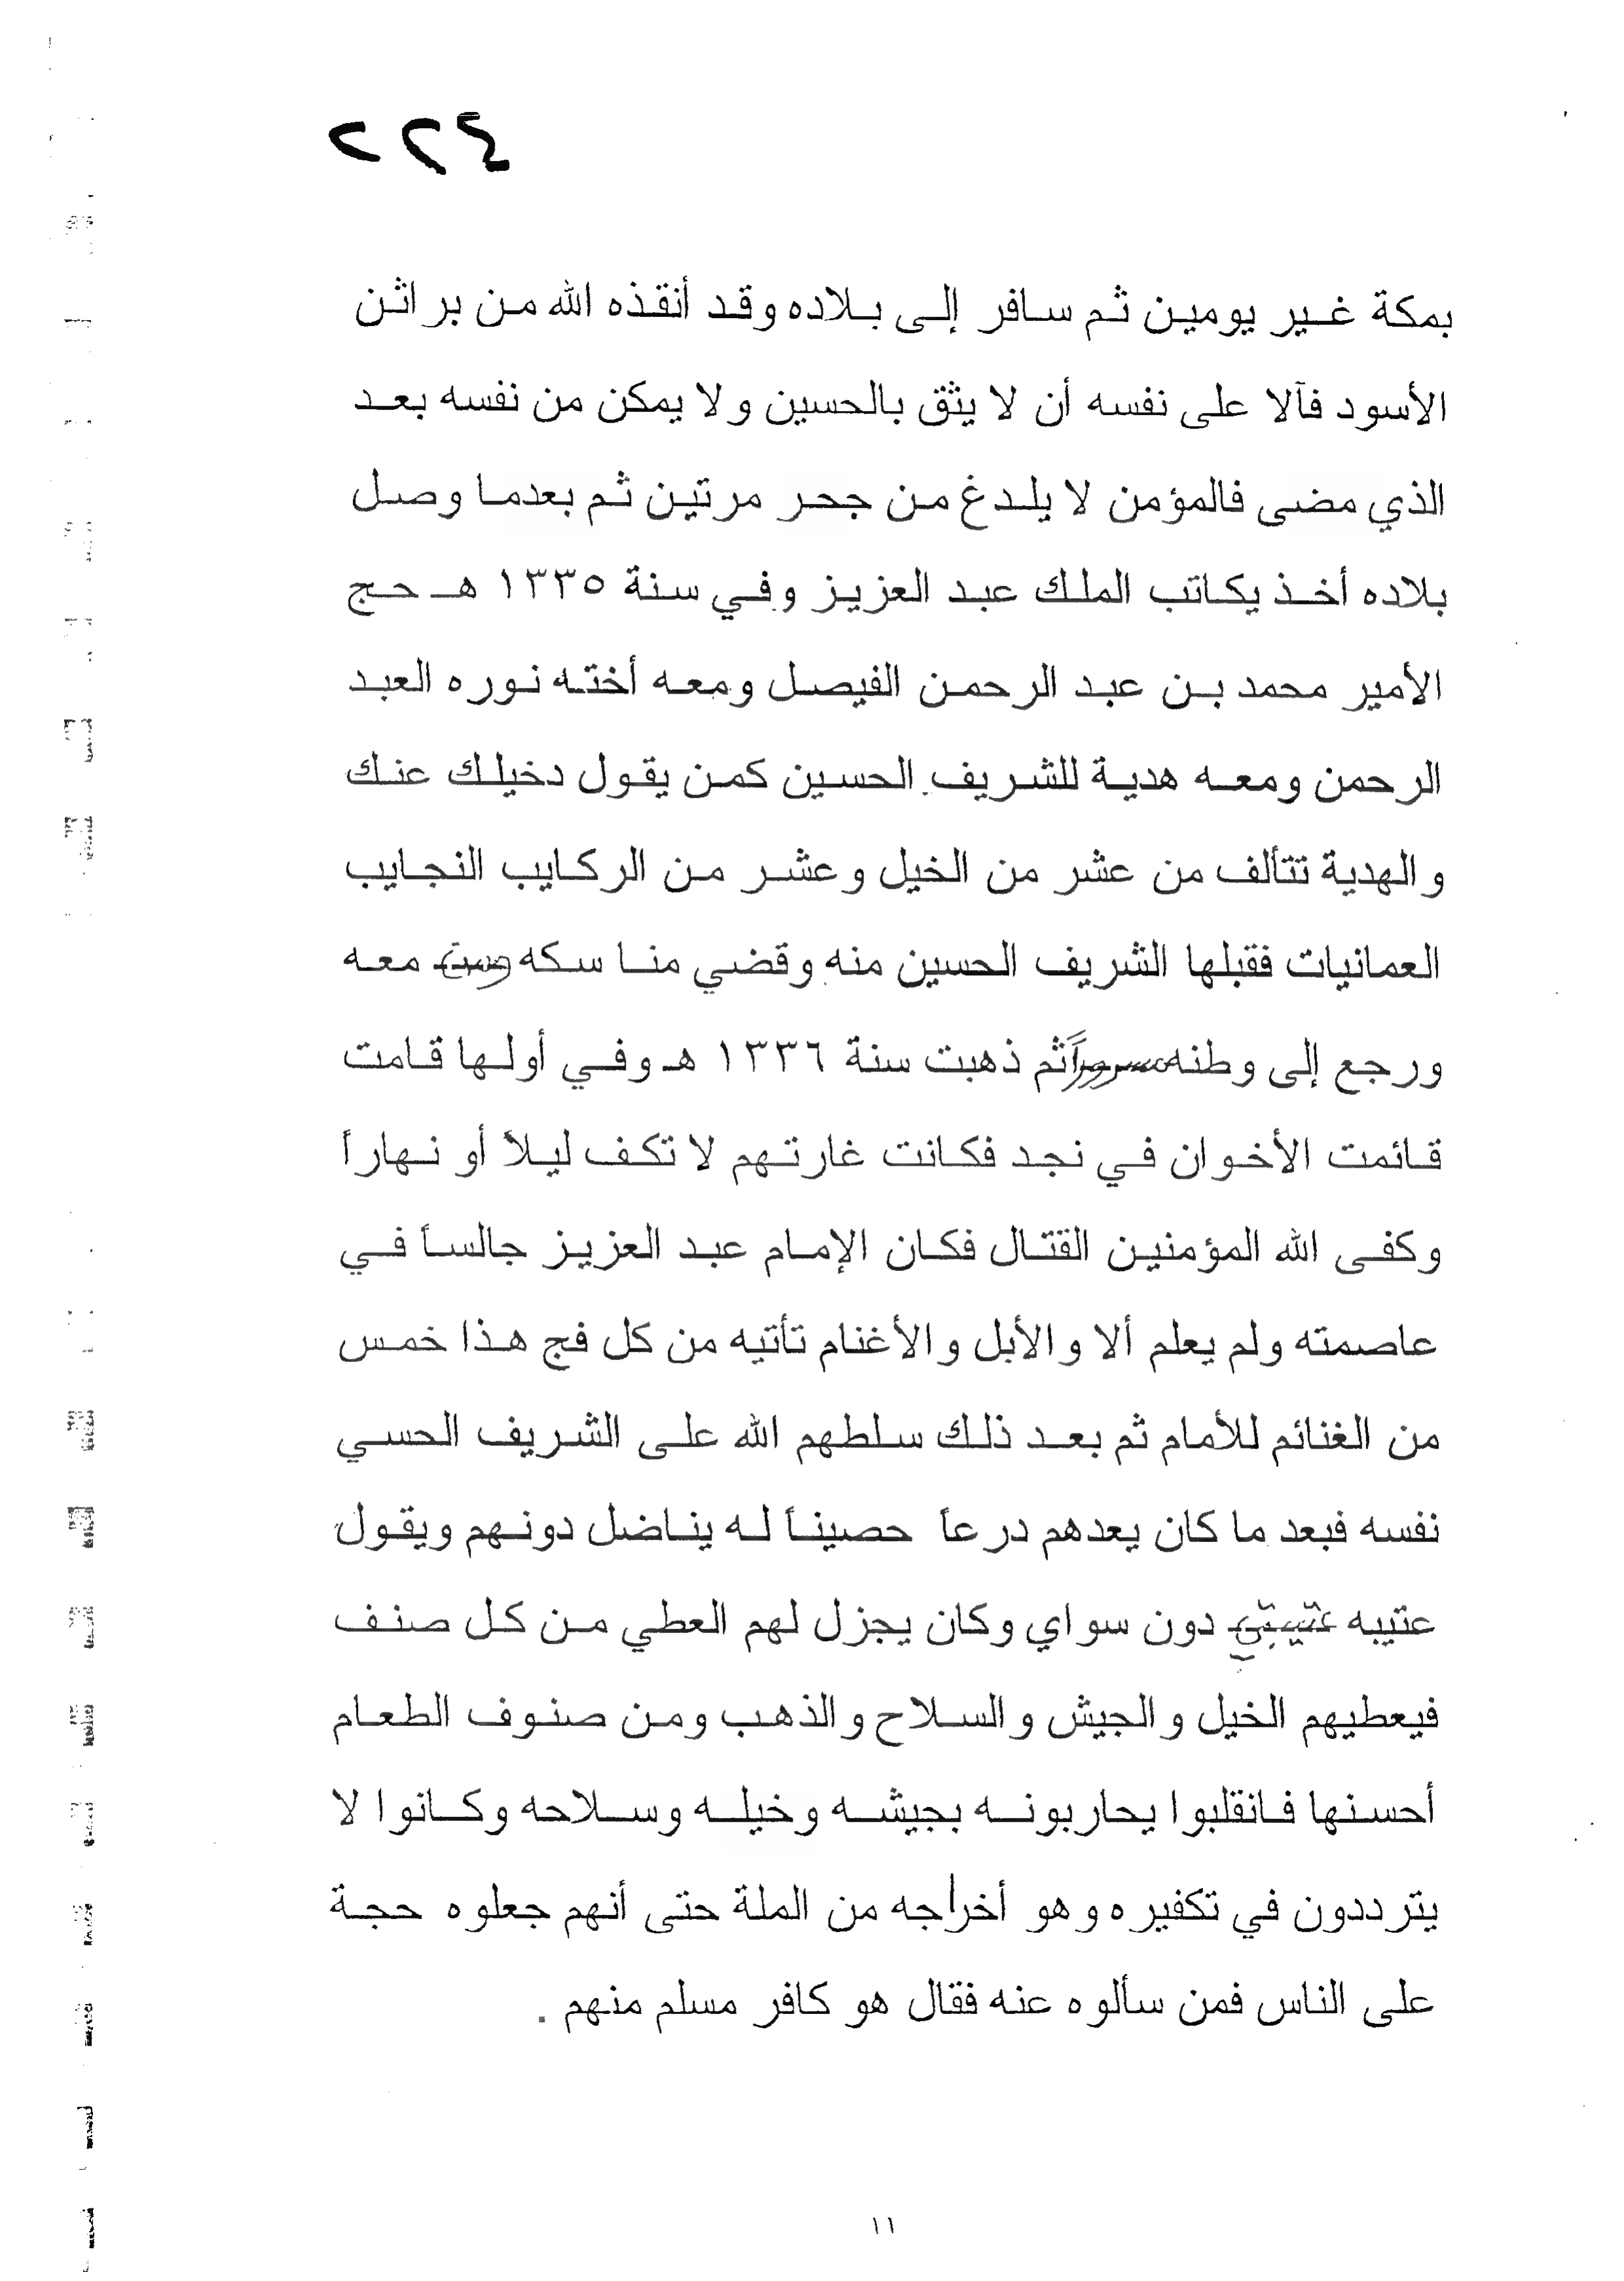 ٤٢٢
بمكة غير يومين ثم سافر إلى بلاده وقد أنقذه الله من براثن
الأسود فآلا على نفسه أن لا يثق بالحسين ولا يمكن من نفسه بعد
الذي مضى فالمؤمن لا يلدغ من جحر مرتين ثم بعدما وصل
بلاده أخذ يكاتب الملك عبد العزيز وفي سنة ١٣٣٥ هـ حج
الأمير محمد بن عبد الرحمن الفيصل ومعه أخته نوره العبد
الرحمن ومعه هدية للشريف الحسين كمن يقول دخيلك عنك
والهدية تتألف من عشر من الخيل وعشر من الركايب النجايب
العمانيات فقبلها الشريف الحسين منه وقضي مناسكه ومن معه
ورجع إلى وطنه مسروراً ثم ذهبت سنة ١٣٣٦ هـ وفي أولها قامت
قائمت الأخوان في نجد فكانت غارتهم لا تكف ليلاً أو نهاراً
وكفى الله المؤمنين القتال فكان الإمام عبد العزيز جالساً في
عاصمته ولم يعلم ألا والأبل والأغنام تأتيه من كل فج هذا خمس
من الغنائم للأمام ثم بعد ذلك سلطهم الله على الشريف الحسي
نفسه فبعد ما كان يعدهم درعاً حصيناً له يناضل دونهم ويقول
عتيبه عتيبتي دون سواي وكان يجزل لهم العطي من كل صنف
فيعطيهم الخيل والجيش والسلاح والذهب ومن صنوف الطعام
أحسنها فانقلبوا يحاربونه بجيشه وخيله وسلاحه وكانوا لا
يترددون في تكفيره وهو أخراجه من الملة حتى أنهم جعلوه حجة
على الناس فمن سألوه عنه فقال هو كافر مسلم منهم .
١١